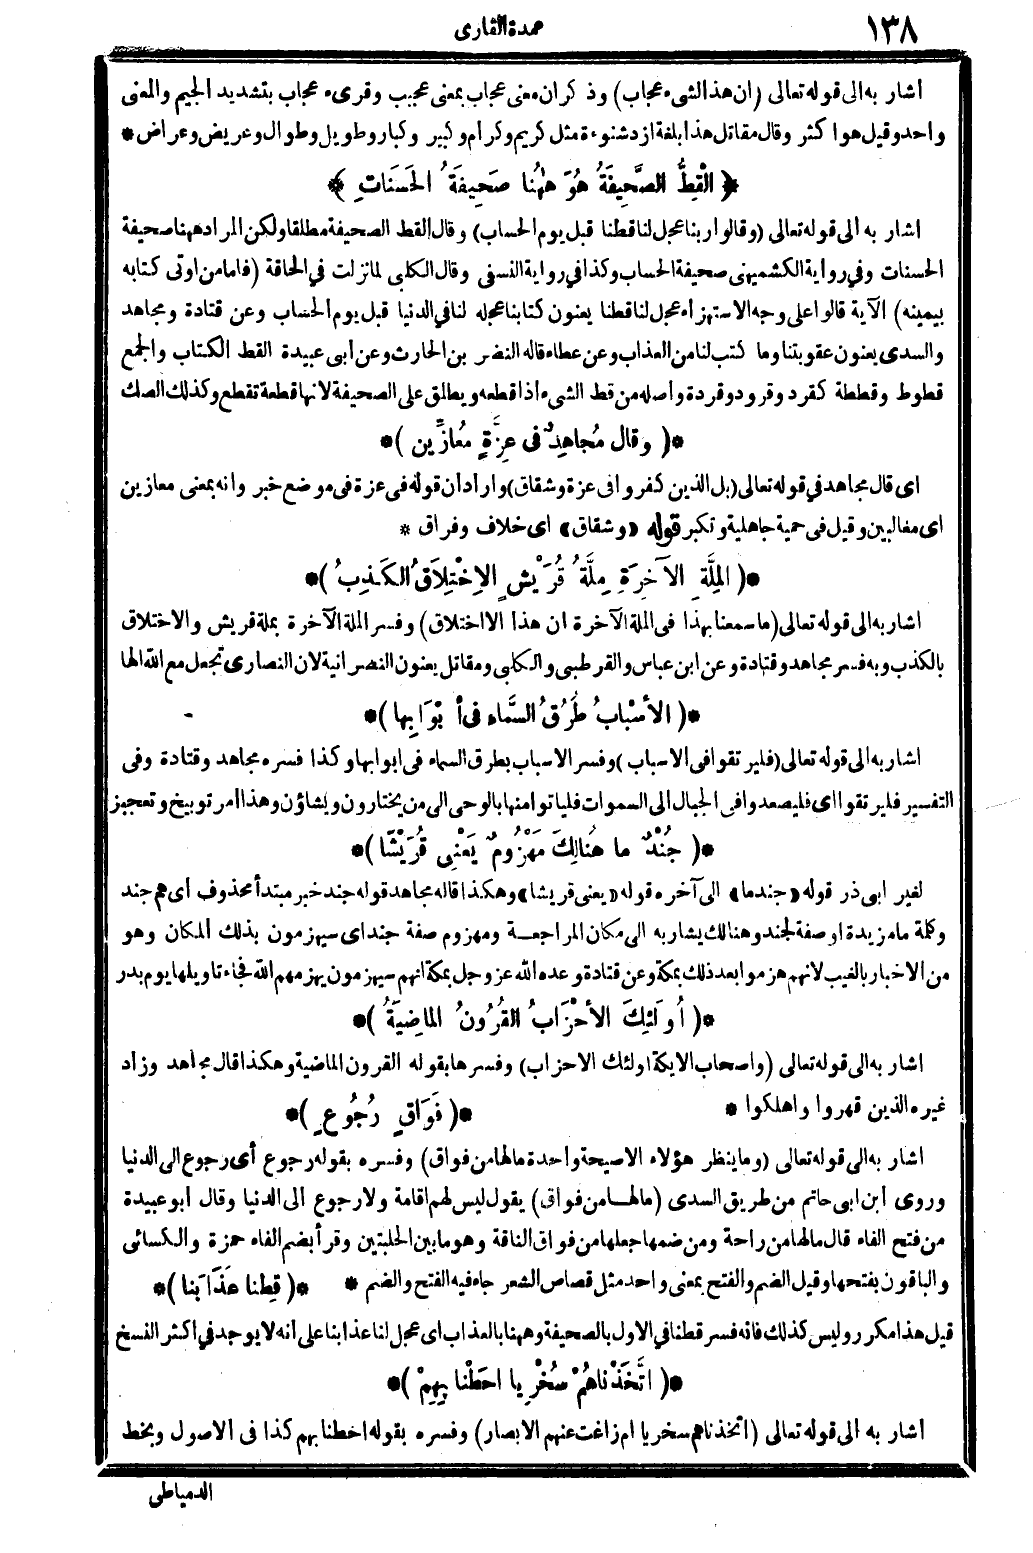 ١٣٨
عمدة القارى
اشار به الى قوله تعالى (ان هذا الشىء عجاب) وذكر ان معنى عجاب بمعنى عجيب وقرىء عجاب بتشديد الجيم والمعنى
واحد وقيل هوا كثر وقال مقاتل هذا بلغة ازد شنوءة مثل كريم وكرام وكبير وكبار وطويل وطوال وعريض وعراض *
﴿ القِطُّ الصَّحِيفَةُ هُوَ هٰهُنا صَحِيفَةُ الحَسَنَاتِ ﴾
اشار به الى قوله تعالى (وقالوا ربنا عجل لنا قطنا قبل يوم الحساب) وقال القط الصحيفة مطلقا ولكن المراد ههنا صحيفة
الحسنات وفي رواية الكشميهنى صحيفة الحساب وكذا في رواية النسفى وقال الكلبى لما نزلت في الحاقة (فاما من اوتى كتابه
بيمينه) الآية قالوا على وجه الاستهزاء عجل لنا قطنا يعنون كتابنا عجله لنا في الدنيا قبل يوم الحساب وعن قتادة ومجاهد
والسدى يعنون عقوبتنا وما كتب لنا من العذاب وعن عطاء قاله النضر بن الحارث وعن ابى عبيدة القط الكتاب والجمع
قطوط وقططة كقرد وقرود وقردة واصله من قط الشىء اذا قطعه ويطلق على الصحيفة لانها قطعة تقطع وكذلك الصك
*( وقال مُجاهِدٌ فى عِزَّةٍ مُعازِّين )*
اى قال مجاهد في قوله تعالى (بل الذين كفروا فى عزة وشقاق) واراد أن قوله فى عزة فى موضع خبر وانه بمعنى معازين
اى مغالبين وقيل فى حمية جاهلية وتكبر قوله «وشقاق» اى خلاف وفراق *
*( المِلَّةِ الآخِرَةِ مِلَّةُ قُرَيْشٍ الاِخْتِلاَقُ الكَذِبُ )*
اشار به الى قوله تعالى (ما سمعنا بهذا فى الملة الآخرة ان هذا الا اختلاق) وفسر الملة الآخرة بملة قريش والاختلاق
بالكذب وبه فسر مجاهد وقتادة وعن ابن عباس والقرطبى والكلبى ومقاتل يعنون النصرانية لان النصارى تجعل مع الله الها
*( الأسْبابُ طُرُقُ السَّماءِ فى أبْوَابِها )*
اشار به الى قوله تعالى (فليرتقوا فى الاسباب) وفسر الاسباب بطرق السماء فى ابوابها وكذا فسره مجاهد وقتادة وفى
التفسير فليرتقوا اى فليصعدوا فى الجبال الى السموات فليأتوا منها بالوحى الى من يختارون ويشاؤن وهذا امر توبيخ وتعجيز
*( جُنْدٌ ما هُنَالِكَ مَهْزُومٌ يَعْنِى قُرَيْشًا )*
لغير ابى ذر قوله «جند ما» الى آخره قوله «يعنى قريشا» وهكذا قاله مجاهد قوله جند خبر مبتدأ محذوف أى هم جند
وكلمة ما مزيدة او صفة لجند وهنالك يشار به الى مكان المراجعة ومهزوم صفة جند اى سيهزمون بذلك المكان وهو
من الاخبار بالغيب لانهم هزموا بعد ذلك بمكة وعن قتادة وعده الله عز وجل بمكة انهم سيهزمون يهزمهم الله فجاء تاويلها يوم بدر
*( أُولَئِكَ الأحْزَابُ القُرُونُ الماضِيَةُ )*
اشار به الى قوله تعالى (واصحاب الايكة اولئك الاحزاب) وفسرها بقوله القرون الماضية وهكذا قال مجاهد وزاد
غيره الذين قهروا واهلكوا *
*( فَوَاقٍ رُجُوعٍ )*
اشار به الى قوله تعالى (وما ينظر هؤلاء الا صيحة واحدة ما لها من فواق) وفسره بقوله رجوع أى رجوع الى الدنيا
وروى ابن ابى حاتم من طريق السدى (ما لهـا من فواق) يقول ليس لهم اقامة ولا رجوع الى الدنيا وقال ابو عبيدة
من فتح الفاء قال ما لها من راحة ومن ضمها جعلها من فواق الناقة وهو ما بين الحلبتين وقرأ بضم الفاء حمزة والكسائى
والباقون بفتحها وقيل الضم والفتح بمعنى واحد مثل قصاص الشعر جاء فيه الفتح والضم * *( قِطنا عَذَابَنا )*
قيل هذا مكرر وليس كذلك فانه فسر قطنا في الاول بالصحيفة وههنا بالعذاب اى عجل لنا عذابنا على انه لا يوجد في اكثر النسخ
*( اتَّخَذْناهُمْ سُخْرِيا احَطْنا بِهِمْ )*
اشار به الى قوله تعالى (اتخذناهم سخريا ام زاغت عنهم الابصار) وفسره بقوله احطنا بهم كذا فى الاصول وبخط
الدمياطى